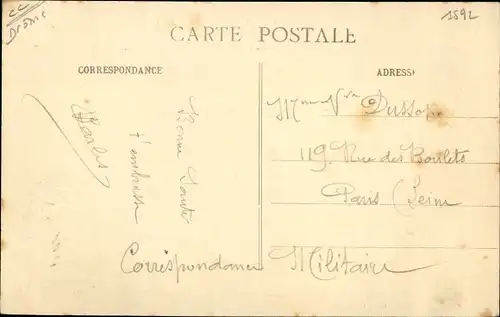 CC
Drôme
1592
CARTE POSTALE
CORRESPONDANCE
ADRESSE
Bonne Santé
t'embrasse
Charles
Mme Vve Dussop
119. Rue des Boulets
Paris (Seine
Correspondance Militaire